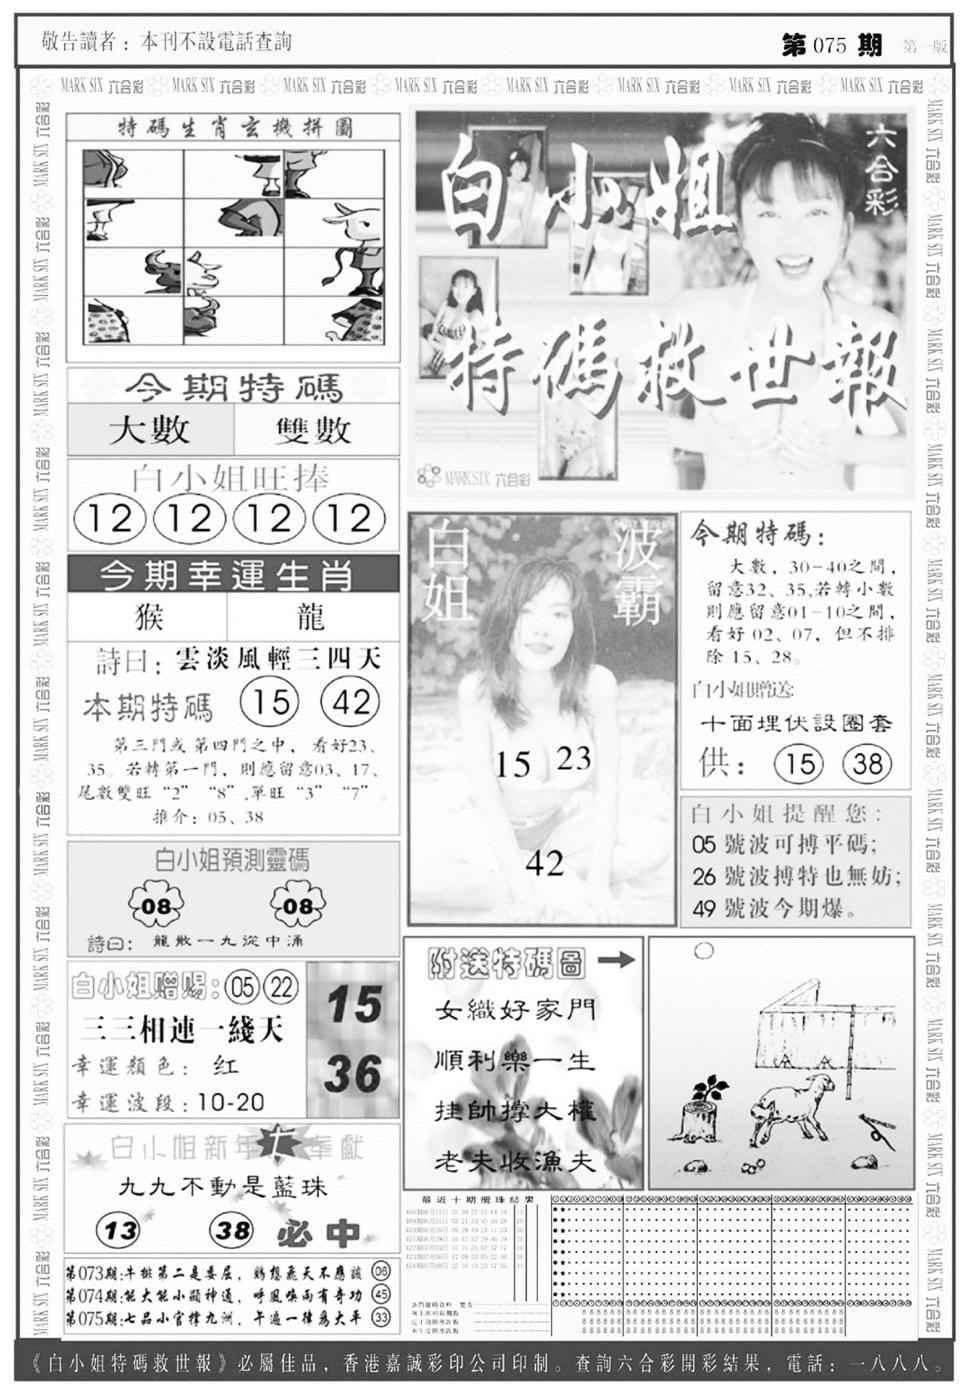 敬告讀者：本刊不設電話查詢
第 075 期 第一版
MARK SIX 六合彩 MARK SIX 六合彩 MARK SIX 六合彩 MARK SIX 六合彩 MARK SIX 六合彩 MARK SIX 六合彩 MARK SIX 六合彩 MARK SIX 六合彩
特碼生肖玄機拼圖
今期特碼
大數 雙數
白小姐旺捧
12 12 12 12
今期幸運生肖
猴 龍
詩曰：雲淡風輕三四天
本期特碼 15 42
第三門或第四門之中，看好23、
35。若轉第一門，則應留意03、17、
尾數雙旺“2”“8”,單旺“3”“7”。
推介：05、38
白小姐預測靈碼
08 08
詩曰：龍散一九從中涌
白小姐赠赐：05 22
三三相連一綫天
幸運顏色：红
幸運波段：10-20
15
36
白小姐新年七奉獻
九九不動是藍珠
13 38 必中
第073期:牛排第二是委屈，鷄想飛天不應該 06
第074期:能大能小顯神通，呼風喚雨有奇功 45
第075期:七品小官撑九洲，平過一律爲大平 33
六合彩
白小姐
特碼救世報
MARK SIX 六合彩
白姐 波霸
15 23
42
今期特碼：
大數，30-40之間，
留意32、35,若轉小數
則應留意01-10之間，
看好 02、07，但不排
除 15、28。
白小姐贈送:
十面埋伏設圈套
供：15 38
白小姐提醒您：
05 號波可搏平碼；
26 號波搏特也無妨；
49 號波今期爆。
附送特碼圖
女織好家門
順利樂一生
挂帥撑大權
老夫收漁夫
最近十期攪珠結果
《白小姐特碼救世報》必屬佳品，香港嘉誠彩印公司印制。查詢六合彩開彩結果，電話：一八八八。